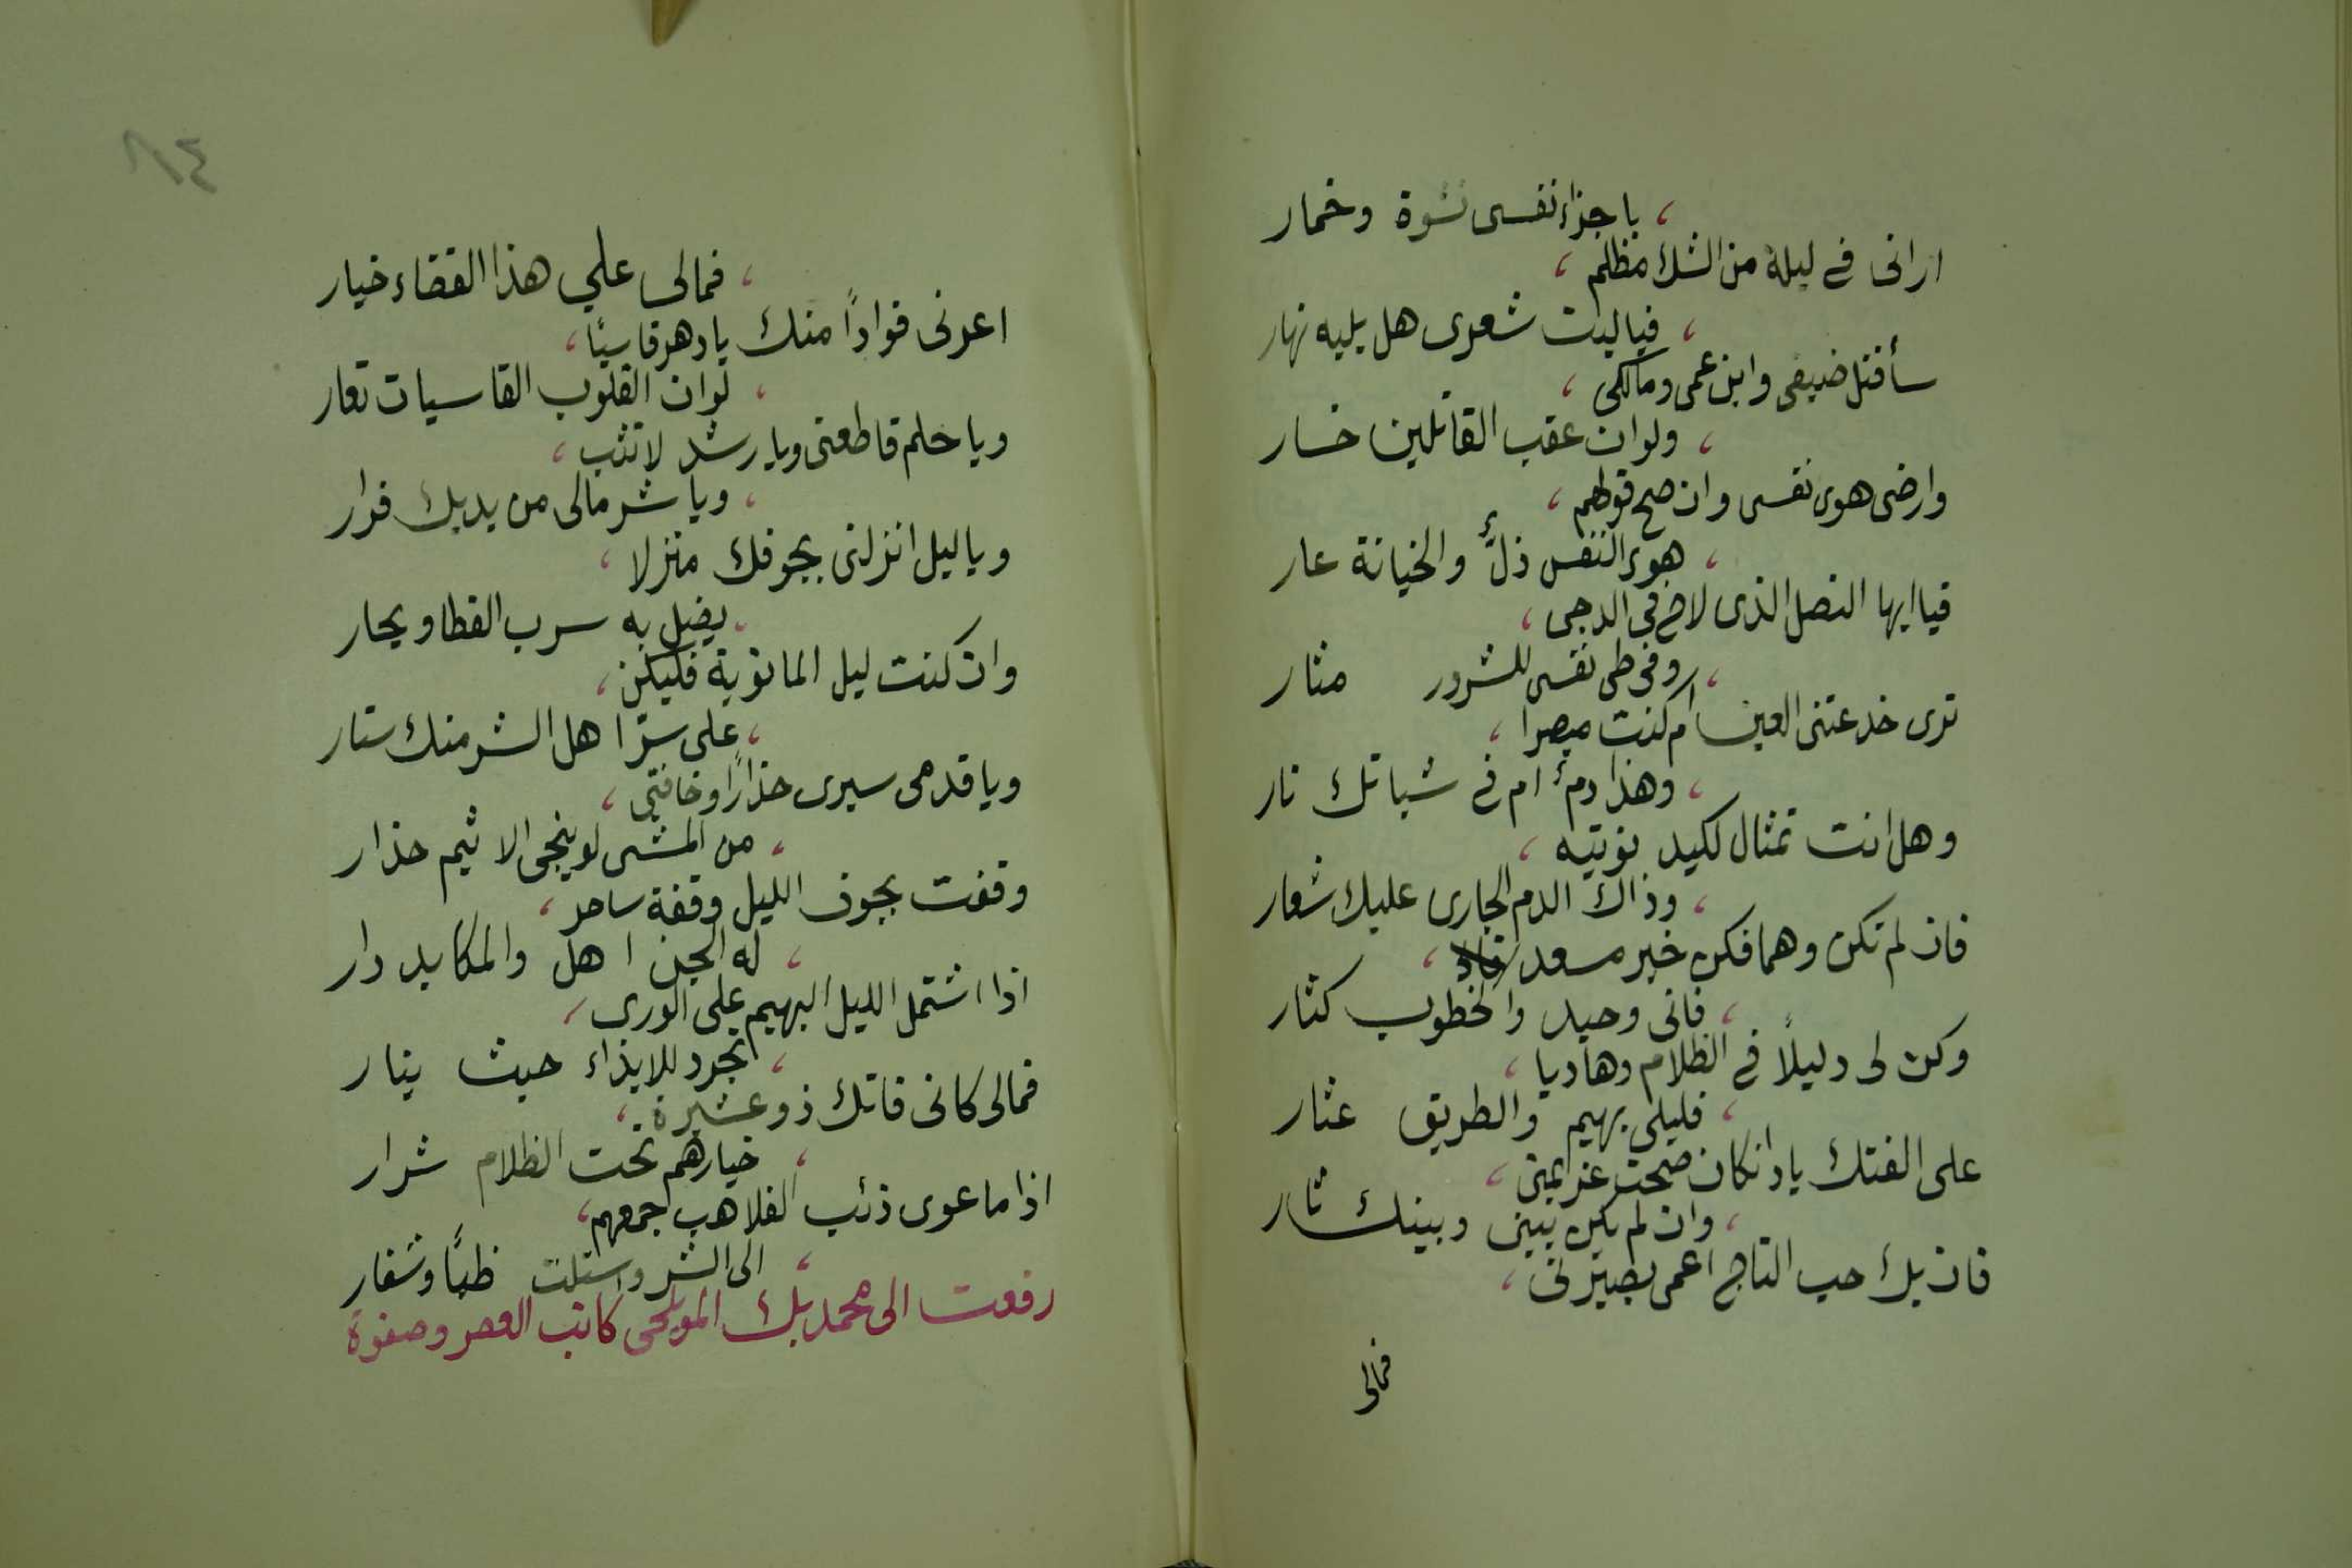 باجزاء نفسى نشوة وخمار
ارانى فے ليلة من الشك مظلم
فياليت شعرى هل يليه نهار
سأقتل ضيفى وابن عمى ومالكى
ولوان عقب القاتلين خسار
وارضى هوى نفسى وان صح قولهم
هوى النفس ذلٌّ والخيانة عار
فيا ايها النصل الذى لاح فى الدجى
وفى طى نفسى للشرور مثار
ترى خدعتنى العين ام كنت مبصرا
وهذا دم ام فے شباتك نار
وهل انت تمثال لكيد نويته
وذاك الدم الجارى عليك شعار
فان لم تكن وهما فكن خير مسعد
فانى وحيد والخطوب كثار
وكن لى دليلاً فے الظلام وهاديا
فليلى بهيم والطريق عثار
على الفتك يا دانكان صحت عزيمتى
وان لم يكن بينى وبينك ثار
فان يك حب التاج اعمى بصيرتى
فمالى
٤٨
فمالى علي هذا القضاء خيار
اعرنى فواداً منك يادهر قاسيًا
لوان القلوب القاسيات تعار
ويا حلم قاطعنى ويا رشد لا تثب
ويا شر مالى من يديك فرار
وياليل انزلنى بجوفك منزلا
يضل به سرب القطا ويحار
وان كنت ليل المانوية فليكن
على سرّ اهل الشر منك ستار
ويا قدمى سيرى حذارًا وخافتى
من المشى لو ينجى الاثيم حذار
وقفت بجوف الليل وقفة ساحر
له الجن اهل والمكايد دار
اذا اشتمل الليل البهيم على الورى
تجرد للايذاء حيث يثار
فمالى كانى فاتك ذو عشيرة
خيارهم تحت الظلام شرار
اذا ما عوى ذئب الفلا هب جمعهم
الى الشر واستلت ظبًا وشفار
رفعت الى محمد بك المويلحى كاتب العصر وصفوة